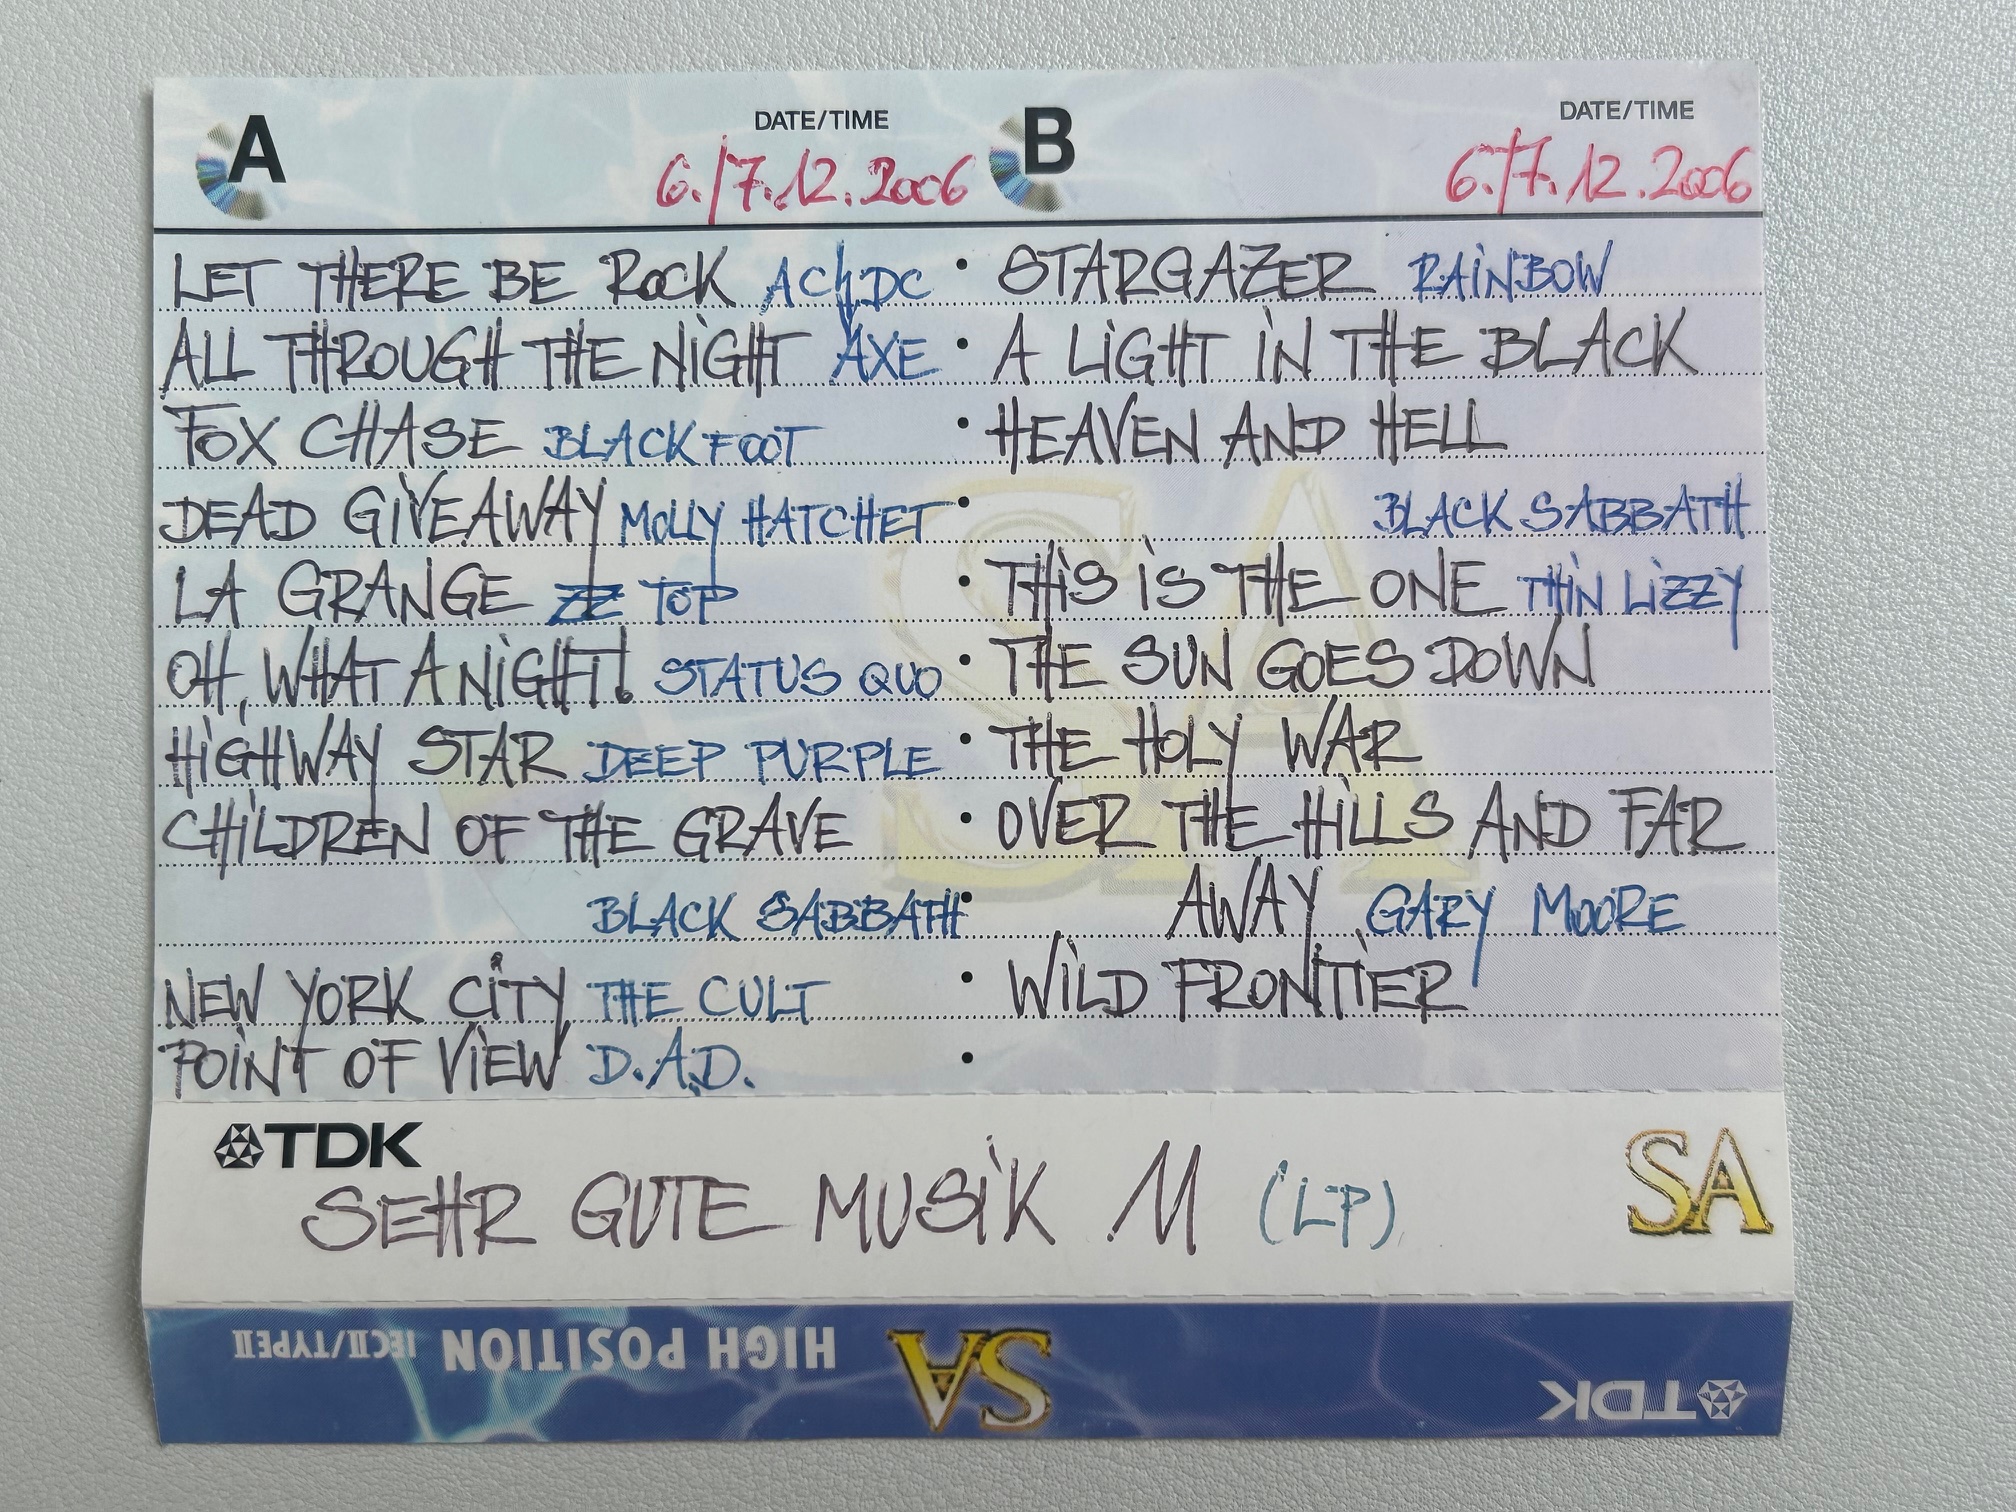 A DATE/TIME
6./7.12.2006
LET THERE BE ROCK AC/DC
ALL THROUGH THE NIGHT AXE
FOX CHASE BLACKFOOT
DEAD GIVEAWAY MOLLY HATCHET
LA GRANGE ZZ TOP
OH, WHAT A NIGHT! STATUS QUO
HIGHWAY STAR DEEP PURPLE
CHILDREN OF THE GRAVE
BLACK SABBATH
NEW YORK CITY THE CULT
POINT OF VIEW D.A.D.
B DATE/TIME
6./7.12.2006
STARGAZER RAINBOW
A LIGHT IN THE BLACK
HEAVEN AND HELL
BLACK SABBATH
THIS IS THE ONE THIN LIZZY
THE SUN GOES DOWN
THE HOLY WAR
OVER THE HILLS AND FAR
AWAY GARY MOORE
WILD FRONTIER
SA
TDK
SEHR GUTE MUSIK 11 (LP)
SA
TDK
SA
HIGH POSITION IECII/TYPEII